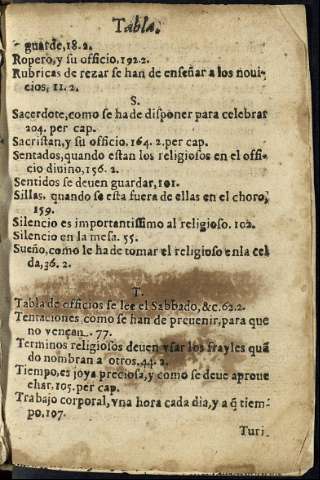 Tabla.
guarde, 18. 2.
Ropero, y su officio. 192. 2.
Rubricas de rezar se han de enseñar a los noui-
cios, 11. 2.
S.
Sacerdote, como se ha de disponer para celebrar
204. per cap.
Sacristan, y su officio. 164. 2. per cap.
Sentados, quando estan los religiosos en el offi-
cio diuino, 156. 2.
Sentidos se deuen guardar, 101.
Sillas, quando se esta fuera de ellas en el choro,
159.
Silencio es importantissimo al religioso. 102.
Silencio en la mesa. 55.
Sueño, como le ha de tomar el religioso en la cel
da, 36. 2.
T.
Tabla de officios se lee el Sabbado, &c. 62. 2.
Tentaciones como se han de preuenir, para que
no vençan. 77.
Terminos religiosos deuen vsar los frayles quā
do nombran a otros. 44. 2.
Tiempo, es joya preciosa, y como se deue aproue
char, 105. per cap.
Trabajo corporal, vna hora cada dia, y a q̃ tiem-
po. 107.
Turi.